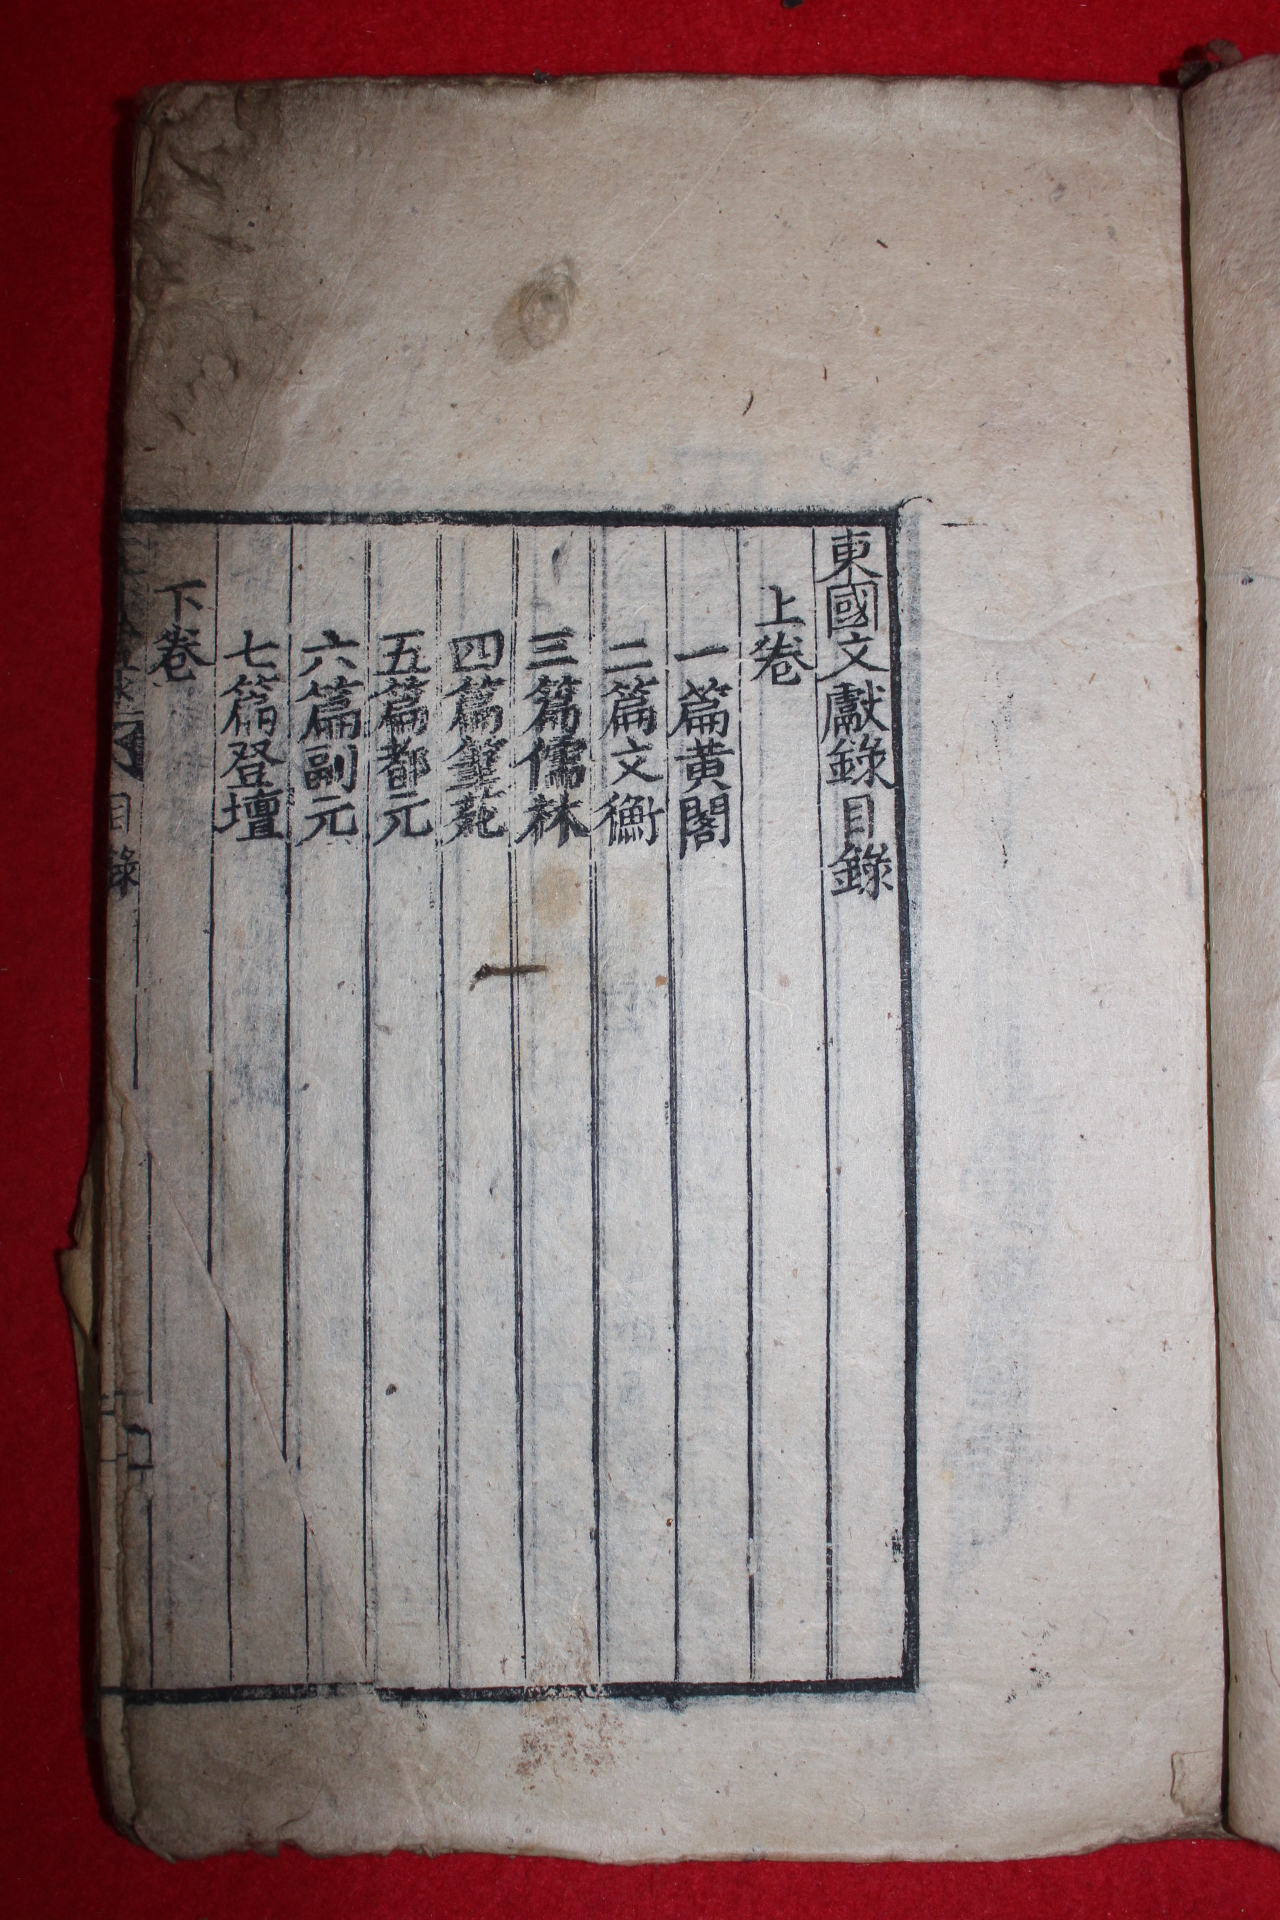 東國文獻錄目錄
上卷
一篇黄閣
二篇文衡
三篇儒林
四篇筆苑
五篇都元
六篇副元
七篇登壇
下卷
目錄